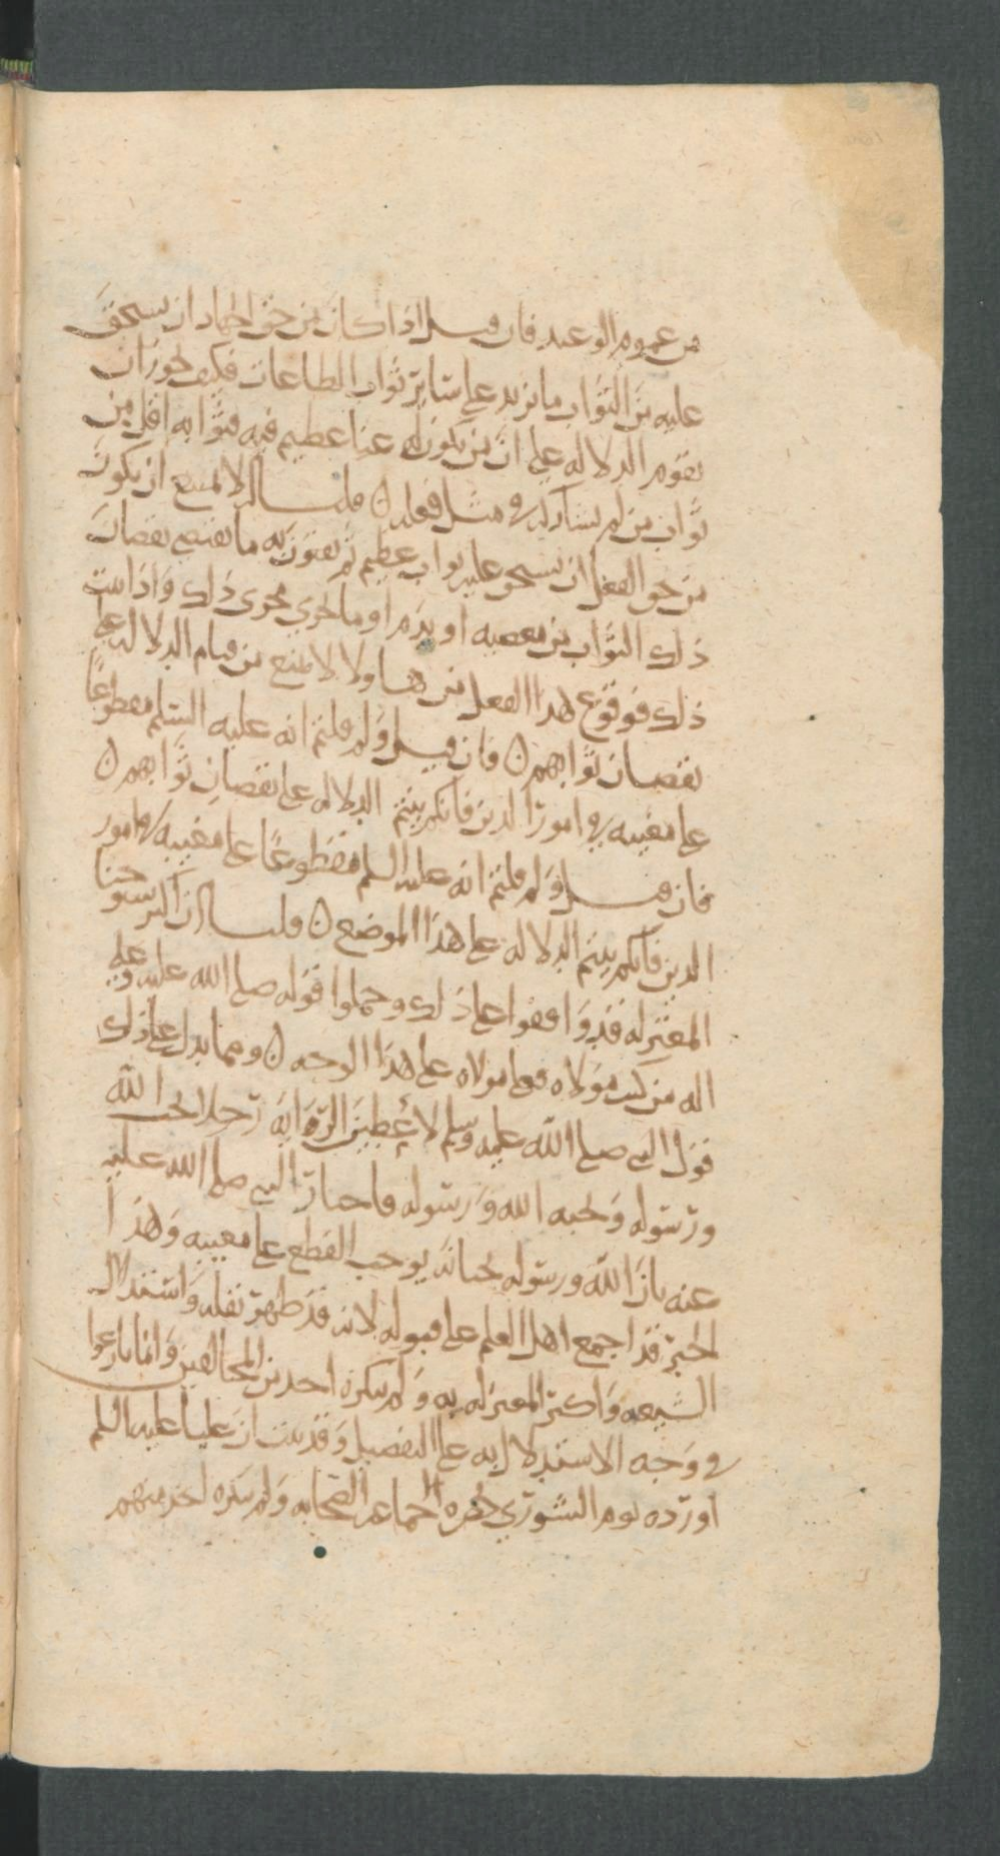 من عموم الوعيد فان قيل اذا كان من حق الجهاد ان يستحق
عليه من الثواب ما يزيد على سائر ثواب الطاعات فكيف يجوز ان
تقوم الدلالة على ان من يكون له عنا عظيم فيه فثوابه اقل من
ثواب من لم يشاركه في مثل فعله ن قلنا انه لا يمتنع ان يكون
من حق الفعل ان يستحق عليه ثواب عظيم ثم يقترن به ما يقتضي نقصان
ذلك الثواب من معصيه او يدم او ما يجري مجرى ذلك واذا ثبت
ذلك فوقوع هذا الفعل من هاولا لا يمنع من قيام الدلاله على
نقصان ثوابهم ن فان قيل ولم قلتم انه عليه السلم مقطوعًا
على مغيبه في امور الدين فانكم بينتم الدلاله على نقصان ثوابهم ن
فان قيل ولم قلتم انه عليه السلم مقطوعًا على مغيبه في امور
الدين فانكم بينتم الدلاله على هذا الموضع ن قلنا ان اكثر شيوخنا
المعتزله قد وافقوا على ذلك وحملوا قوله صلى الله عليه وعلى
اله من كنت مولاه فعلي مولاه على هذا الوجه ن ومما يدل على ذلك
قول النبي صلى الله عليه وسلم لأعطين الراية رجلا يحب الله
ورسوله ويحبه الله ورسوله فاخبار النبي صلى الله عليه
عنه بان الله ورسوله يحبانه يوجب القطع على مغيبه وهذا
الخبر قد اجمع اهل العلم على قبوله لانه قد ظهر نقله واستدلال
الشيعه واكثر المعتزله به ولم ينكره احد من المخالفين وانما نازعوا
في وجه الاستدلال به على التفصيل وقد ثبت ان عليا عليه السلم
اورده يوم الشورى بحضره الجماعه الصحابه ولم ينكره احد منهم